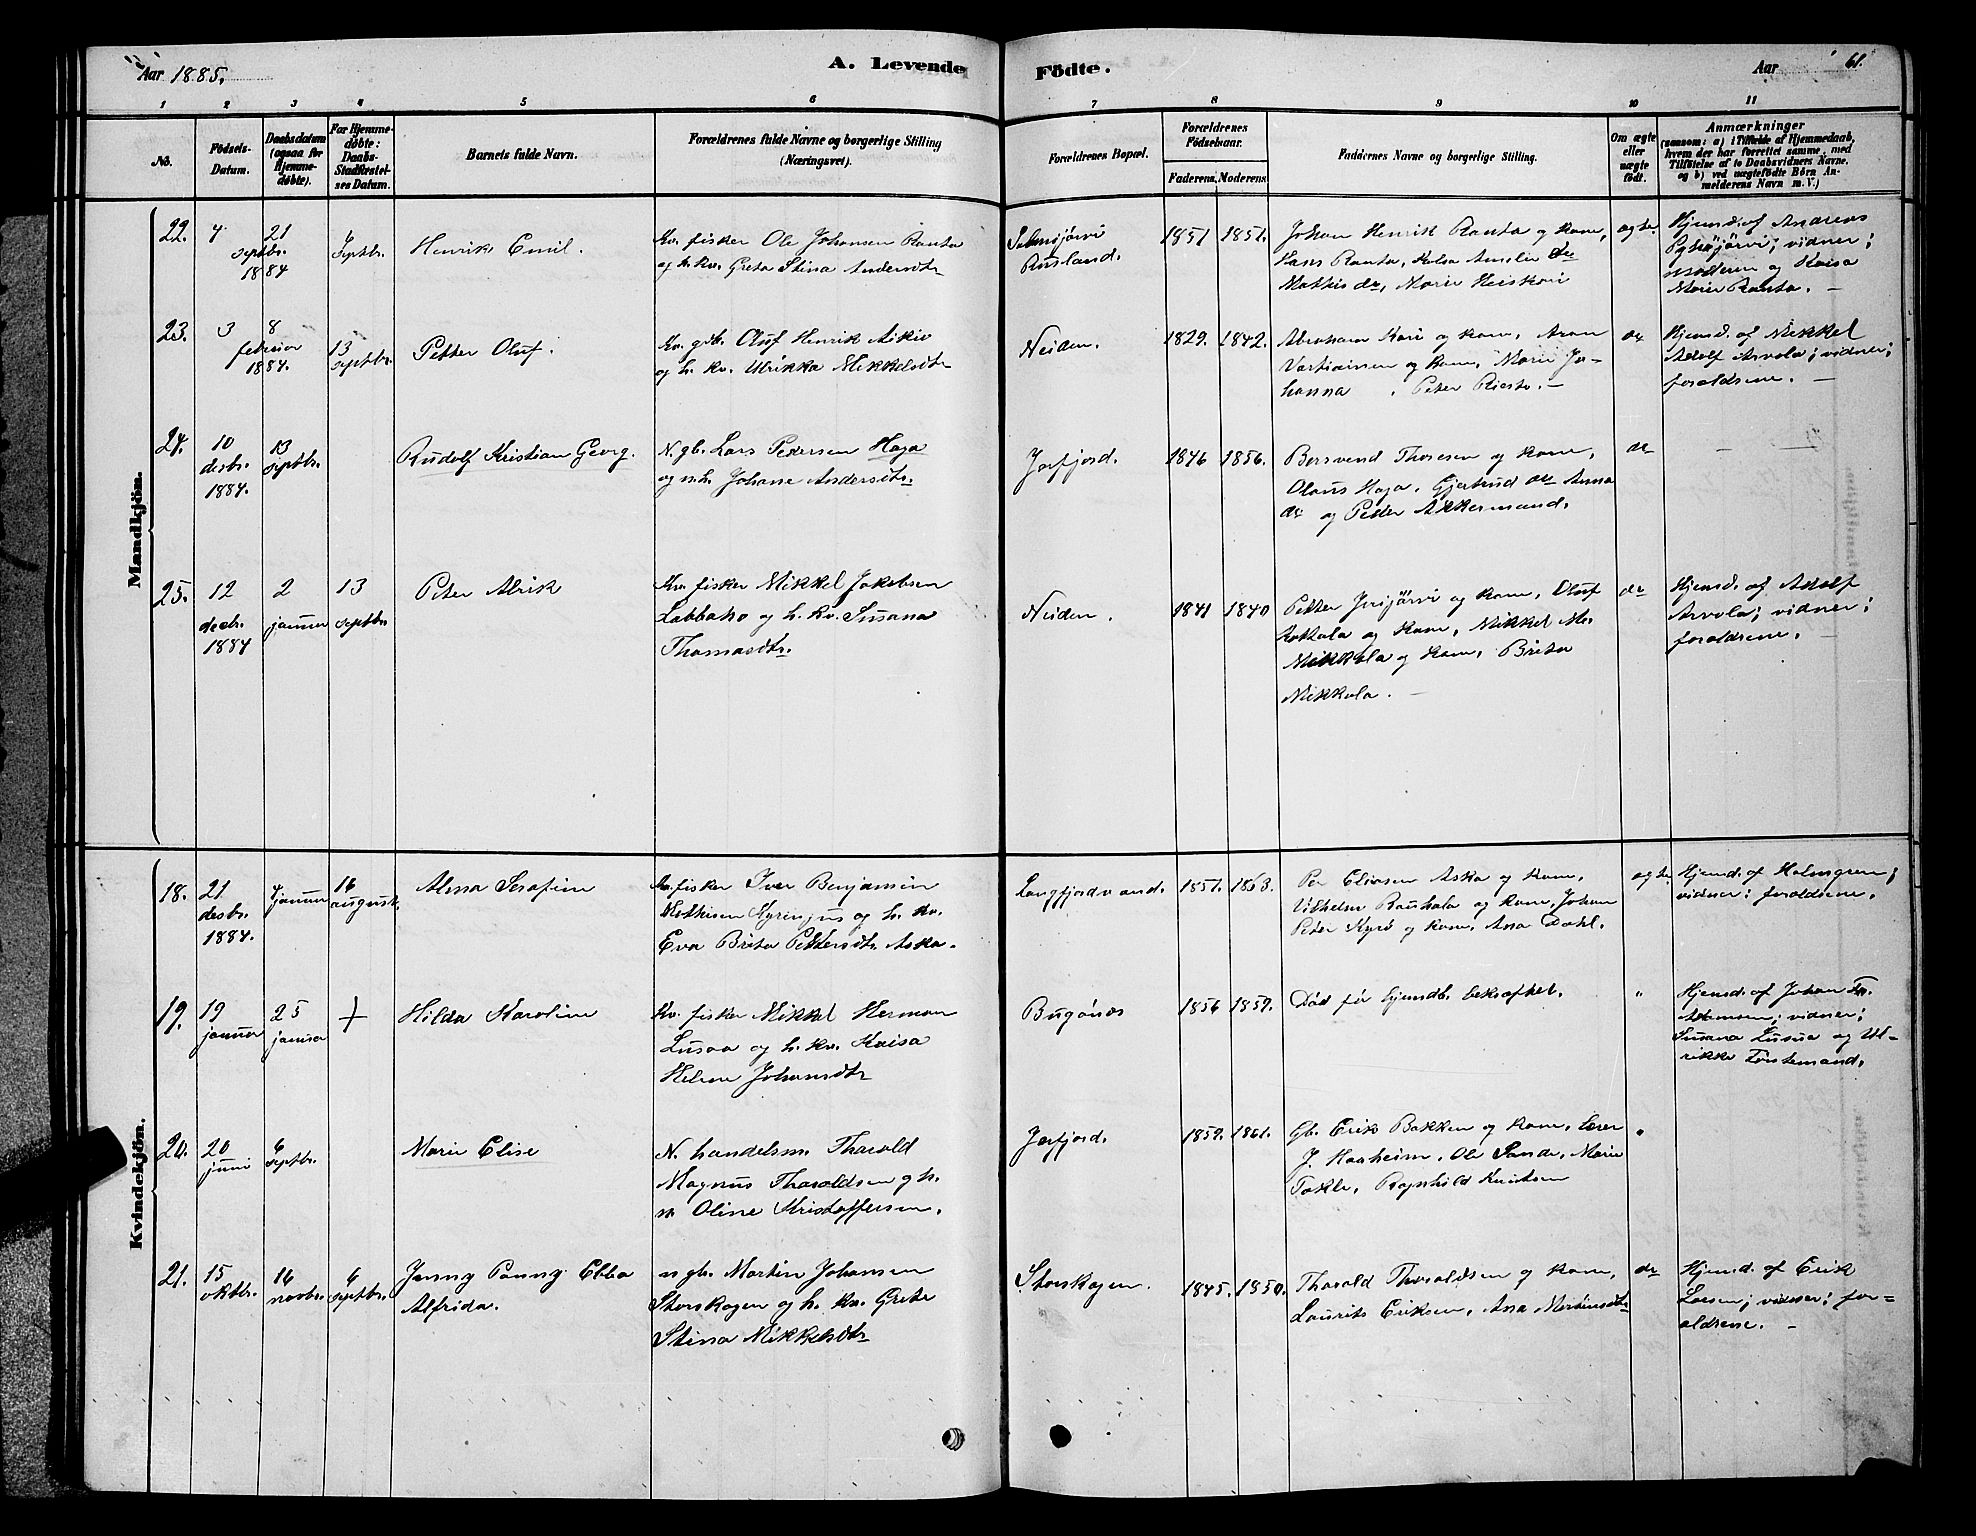 Aar 1885.
A. Levende Födte.
Aar 61.
1 2 3 4 5 6 7 8 9 10 11
No.
Födsels-Datum.
Daabsdatum (ogsaa for Hjemme-döbte).
For Hjemme-döbte: Daabs-Stadfæstel-ses Datum.
Barnets fulde Navn.
Forældrenes fulde Navne og borgerlige Stilling (Næringsvei).
Forældrenes Bopæl.
Forældrenes Födselsaar.
Faderens. Moderens.
Faddernes Navne og borgerlige Stilling.
Om ægte eller uægte födt.
Anmærkninger
(saasom: a) i Tilfælde af Hjemmedaab, hvem der har forrettet samme, med Tilföielse af to Daabsvidners Navne, og b) ved uægtefödte Börn An-melderens Navn m. V.)
Mandkjön.
22. 4 septbr. 1884
21
septbr.
Henrik Emil.
Kv. fisker Ole Johansen Ranta
og h. kv. Greta Stina Andersdtr
Salmijärvi
Rusland.
1851 1851.
Johan Henrik Ranta og kone,
Hans Ranta, Kalsa Amelie do
Mathis do, Marie Heiskari
ægte.
Hjemd. af Andreas
vidner;
moderen og Kaisa
Marie Ranta. —
23. 3 februar 1884.
8
13 septbr.
Petter Oluf.
Kv. gdb. Oluf Henrik Aikio
og h. kv. Ulrikka Mikkelsdtr
Neiden.
1829. 1842.
Abraham Kari og kone, Aron
Vartiainen og kone, Marie Jo-
hanna , Peter Riesto. —
do
Hjemd. af Mikkel
Adolf Arvola; vidner;
forældrene. —
24. 10 desbr. 1884.
13 septbr.
Rudolf Kristian Georg.
N. gb. Lars Pedersen Haga
og n. h. Johane Andersdtr.
Jarfjord.
1846 1856.
Bersvend Thoresen og kone,
Olaus Haga, Gjertrud do Anna
do og Petter Akkermand.
do — —
25. 12 decbr. 1884
2 januar
13 septbr
Peter Alrik
Kv. fisker Mikkel Jakobsen
Labbako og h. kv. Susana
Thomasdtr.
Neiden.
1841 1840
Petter Jerijärvi og kone, Oluf
Anttala og kone, Mikkel M.
Mikkola og kone, Brita
Mikkola. —
do
Hjemd. af Adolf
Arvola; vidner;
forældrene. —
Kvindekjön.
18. 21 desbr. 1884.
4 januar
16 august.
Alma Serafine
Kv. fisker Iver Benjamin
Mathisen og h. kv.
Eva Brita Pettersdtr Aska.
Langfjordvand.
1851. 1863.
Per Eliasen Aska og kone,
Vilhelm Rauhala og kone, Johan
Peter Kyrö og kone, Ana Dahl.
ægte
Hjemd. af Holmgren;
vidner: forældrene.
19. 19 januar
25 januar
+
Hilda Karoline
Kv. fisker Mikkel Herman
Lusua og h. kv. Kaisa
Helene Johansdtr
Bugönæs
1856 1859.
Död för hjemdb. bekræftet.
"
Hjemd. af Johan Fr.
Adamsen; vidner;
Susana Lusua og Ul-
rikke Torstemand.
20. 20 juni
6 septbr.
Marie Elise
N. handelsm. Tharald
Magnus Tharaldsen og h.
n. Oline Kristoffersen.
Jarfjord.
1859. 1861.
Gb. Erik Bakken og kone, Lærer
J. Haaheim, Ole Sande, Marie
Takle, Ragnhild Knutsen
"
21. 15 oktbr.
16 novbr.
6 septbr.
Jenny Fanny Ebba
Alfrida.
n gb. Martin Johansen
Storskogen og h. kv. Grete
Stina Mikkelsdtr
Storskogen.
1845. 1850.
Tharald Tharaldsen og kone,
Laurits Eriksen, Ana Martinsdtr
do
Hjemd. af Erik
Larsen; vidner; for-
ældrene. —